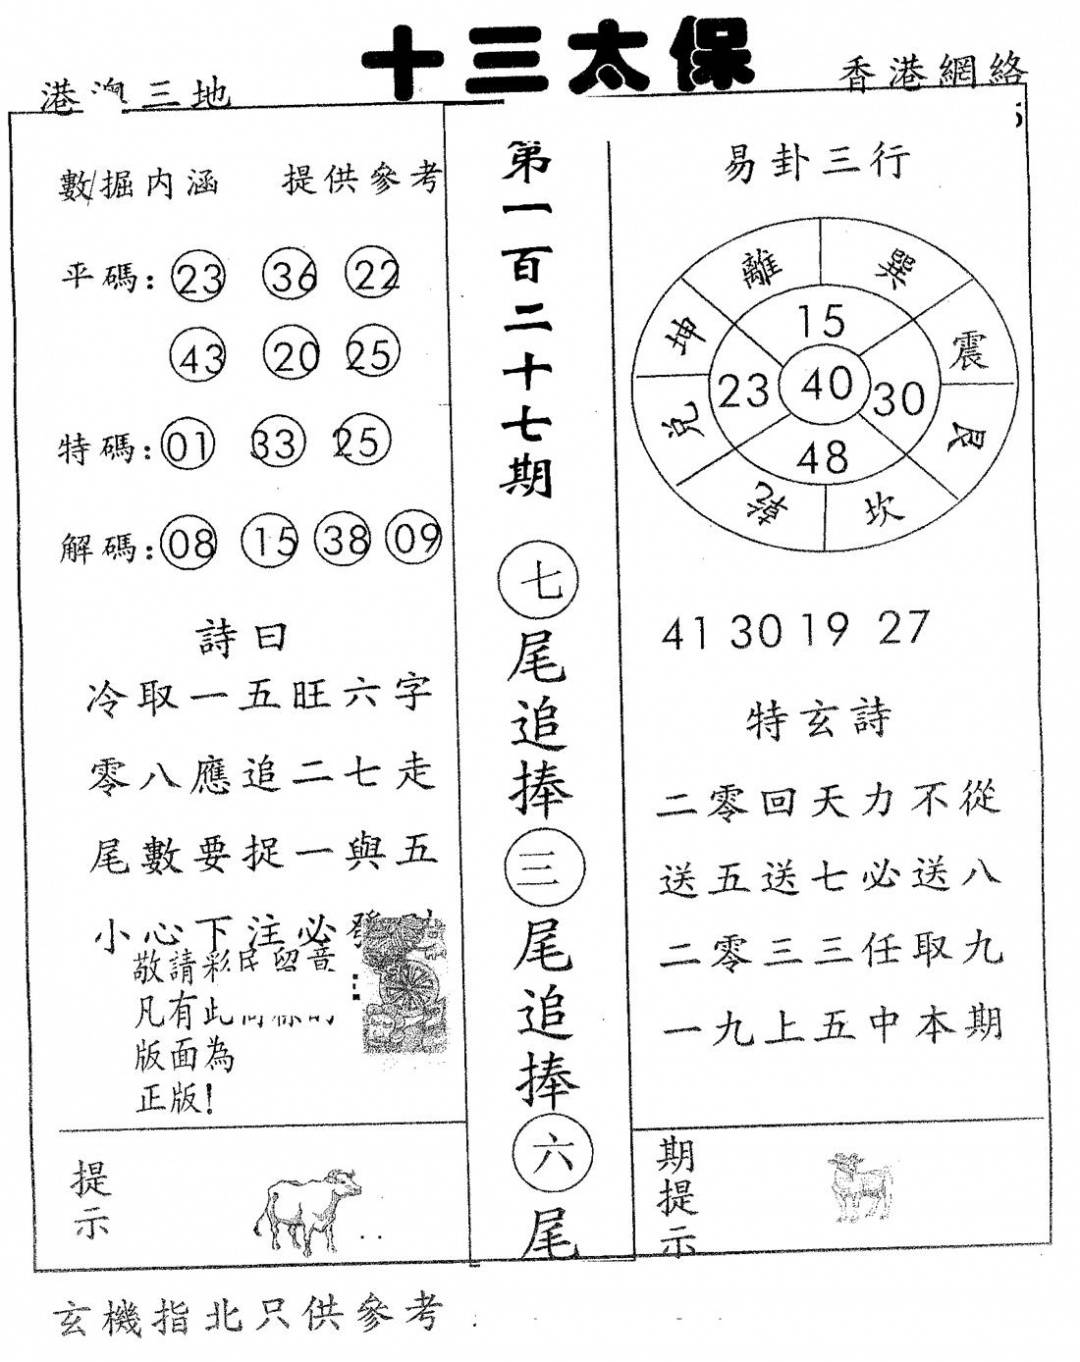 十三太保
港澳三地
香港網絡
數掘内涵 提供參考
平碼: 23 36 22
43 20 25
特碼: 01 33 25
解碼: 08 15 38 09
詩曰
冷取一五旺六字
零八應追二七走
尾數要捉一與五
小心下注必發
敬請彩民留意
凡有此
版面為
正版!
提示
第一百二十七期
七尾追捧三尾追捧六尾
5
易卦三行
離 巽
坤 震
兌 艮
乾 坎
15
23 40 30
48
41 30 19 27
特玄詩
二零回天力不從
送五送七必送八
二零三三任取九
一九上五中本期
期提示
玄機指北只供參考